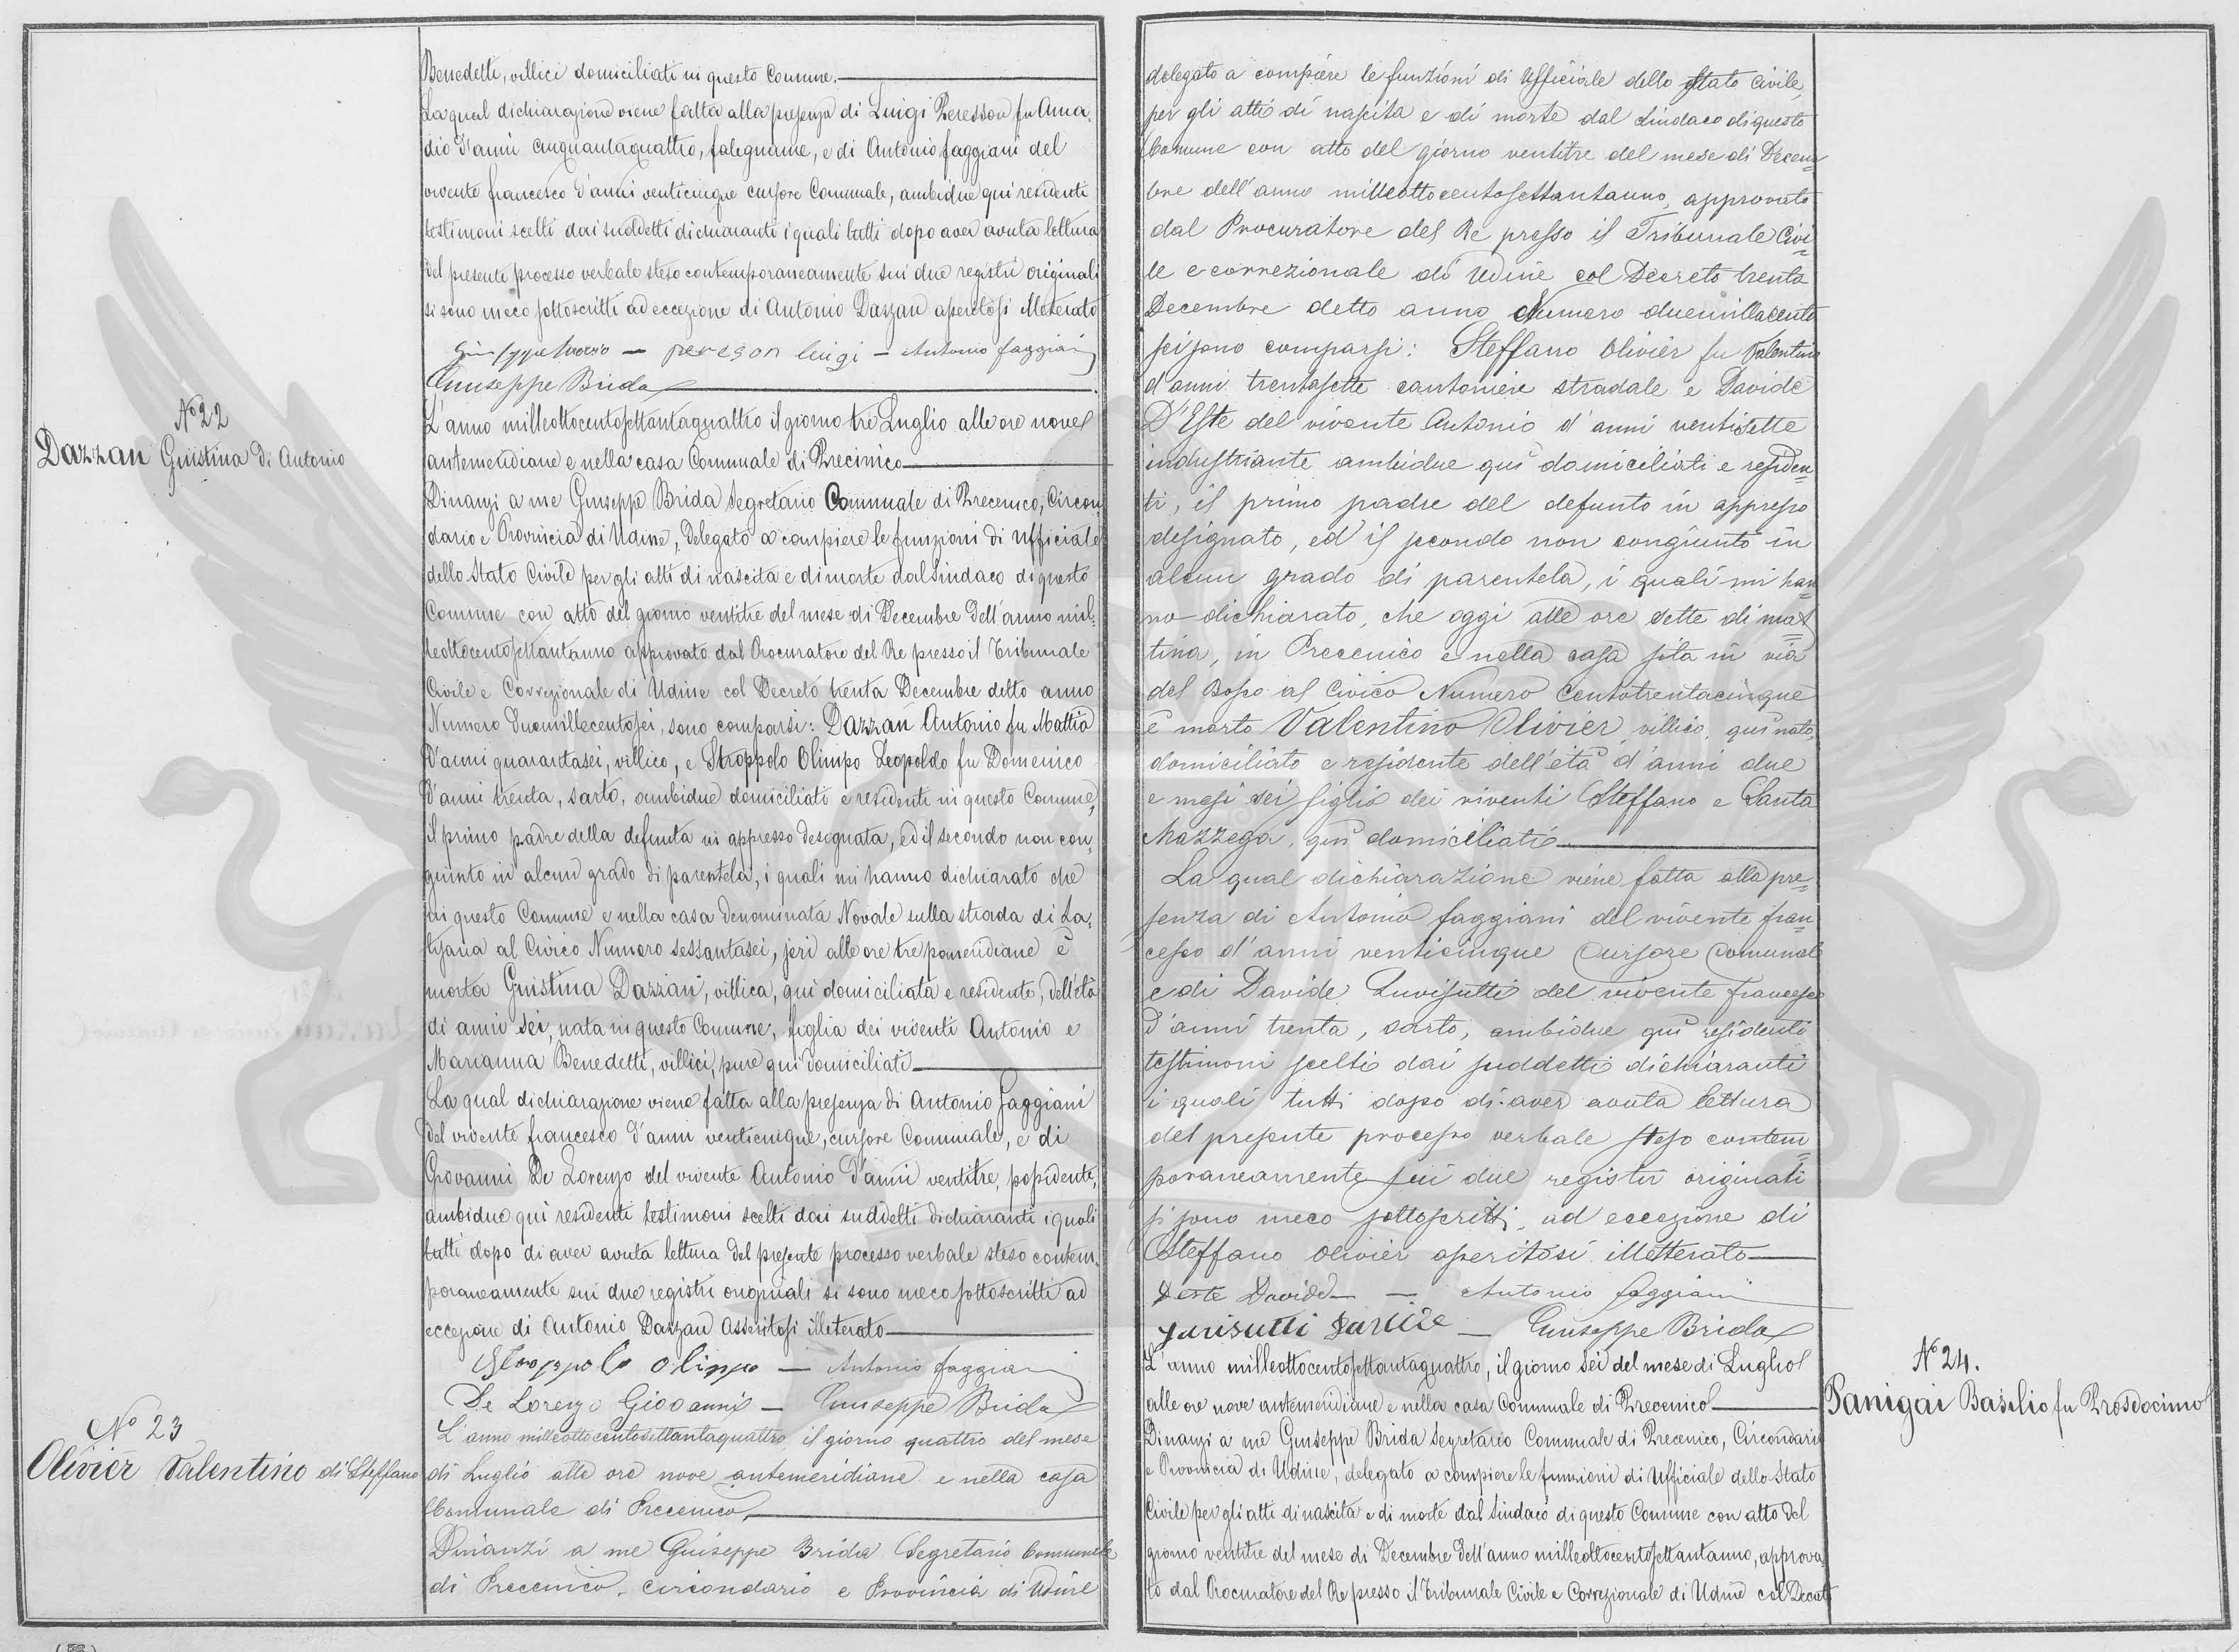 Benedetti, villici domiciliati in questo Comune.
La qual dichiarazione viene fatta alla presenza di Luigi Peresson fu Ama-
dio d'anni cinquantaquattro, falegname, e di Antonio Faggiani del
vivente Francesco d'anni venticinque cursore Comunale, ambidue qui residenti
testimoni scelti dai suddetti dichiaranti i quali tutti dopo aver avuta lettura
del presente processo verbale steso contemporaneamente sui due registri originali
si sono meco sottoscritti ad eccezione di Antonio Dazzan asseritosi illeterato
Giuseppe — pereson luigi — Antonio Faggiani
Giuseppe Brida
N° 22
Dazzan Giustina di Antonio
L'anno milleottocentosettantaquattro il giorno tre Luglio alle ore nove
antemeridiane e nella casa Comunale di Precinico
Dinanzi a me Giuseppe Brida Segretario Comunale di Precenico, Circon-
dario e Provincia di Udine, delegato a compiere le funzioni di Ufficiale
dello Stato Civile per gli atti di nascita e di morte dal Sindaco di questo
Comune con atto del giorno ventitre del mese di Decembre dell'anno mil-
leottocentosettantauno approvato dal Procuratore del Re presso il Tribunale
Civile e Correzionale di Udine col Decreto trenta Decembre detto anno
Numero duemillecentosei, sono comparsi: Dazzan Antonio fu Mattia
d'anni quarantasei, villico, e Stroppolo Olimpo Leopoldo fu Domenico
d'anni trenta, sarto, ambidue domiciliati e residenti in questo Comune,
il primo padre della defunta in appresso designata, ed il secondo non con-
giunto in alcun grado di parentela, i quali mi hanno dichiarato che
in questo Comune e nella casa denominata Novale sulla strada di La-
tisana al Civico Numero sessantasei, jeri alle ore tre pomeridiane è
morta Giustina Dazzan, villica, qui domiciliata e residente, dell'età
di anni sei, nata in questo Comune, figlia dei viventi Antonio e
Marianna Benedetti, villici, pure qui domiciliati
La qual dichiarazione viene fatta alla presenza di Antonio Faggiani
del vivente Francesco d'anni venticinque, cursore Comunale, e di
Giovanni De Lorenzo del vivente Antonio d'anni ventitre, possidente,
ambidue qui residenti testimoni scelti dai suddetti dichiaranti i quali
tutti dopo di aver avuta lettura del presente processo verbale steso contem-
poraneamente sui due registri originali si sono meco sottoscritti ad
eccezione di Antonio Dazzan asseritosi illeterato
Stroppolo Olimpo — Antonio Faggiani
De Lorenzo Giovanni — Giuseppe Brida
N° 23
Olivier Valentino di Steffano
L'anno milleottocentosettantaquattro, il giorno quattro del mese
di Luglio alle ore nove antemeridiane e nella casa
Comunale di Precenico
Dinanzi a me Giuseppe Brida Segretario Comunale
di Precenico, Circondario e Provincia di Udine
delegato a compiere le funzioni di Ufficiale dello Stato Civile,
per gli atti di nascita e di morte dal Sindaco di questo
Comune con atto del giorno ventitre del mese di Decem-
bre dell'anno milleottocentosettantauno, approvato
dal Procuratore del Re presso il Tribunale Civi-
le e correzionale di Udine col Decreto trenta
Decembre detto anno Numero duemillacento
sei sono comparsi: Steffano Olivier fu Valentino
d'anni trentasette cantoniere stradale e Davide
D'Este del vivente Antonio d'anni ventisette
industriante ambidue qui domiciliati e residen-
ti, il primo padre del defunto in appresso
designato, ed il secondo non congiunto in
alcun grado di parentela, i quali mi han-
no dichiarato, che oggi alle ore sette di mat-
tina, in Precenico e nella casa sita in via
del Bosco al Civico Numero Centotrentacinque
è morto Valentino Olivier, villico, qui nato,
domiciliato e residente dell'età d'anni due
e mesi sei figlio dei viventi Steffano e Santa
Mazzega, qui domiciliati
La qual dichiarazione viene fatta alla pre-
senza di Antonio Faggiani del vivente Fran-
cesco d'anni venticinque Cursore Comunale
e di Davide Luvisutti del vivente Francesco
d'anni trenta, sarto, ambidue qui residenti
testimoni scelti dai suddetti dichiaranti
i quali tutti dopo di aver avuta lettura
del presente processo verbale steso contem-
poraneamente sui due registri originali
si sono meco sottoscritti, ad eccezione di
Steffano Olivier asseritosi illetterato
Deste Davide — Antonio Faggiani
Davide — Giuseppe Brida
N° 24.
Panigai Basilio fu Prosdocimo
L'anno milleottocentosettantaquattro, il giorno sei del mese di Luglio
alle ore nove antemeridiane e nella casa Comunale di Precenico
Dinanzi a me Giuseppe Brida Segretario Comunale di Precenico, Circondario
e Provincia di Udine, delegato a compiere le funzioni di Ufficiale dello Stato
Civile per gli atti di nascita e di morte dal Sindaco di questo Comune con atto del
giorno ventitre del mese di Decembre dell'anno milleottocentosettantauno, approva-
to dal Procuratore del Re presso il Tribunale Civile e Correzionale di Udine col Decreto